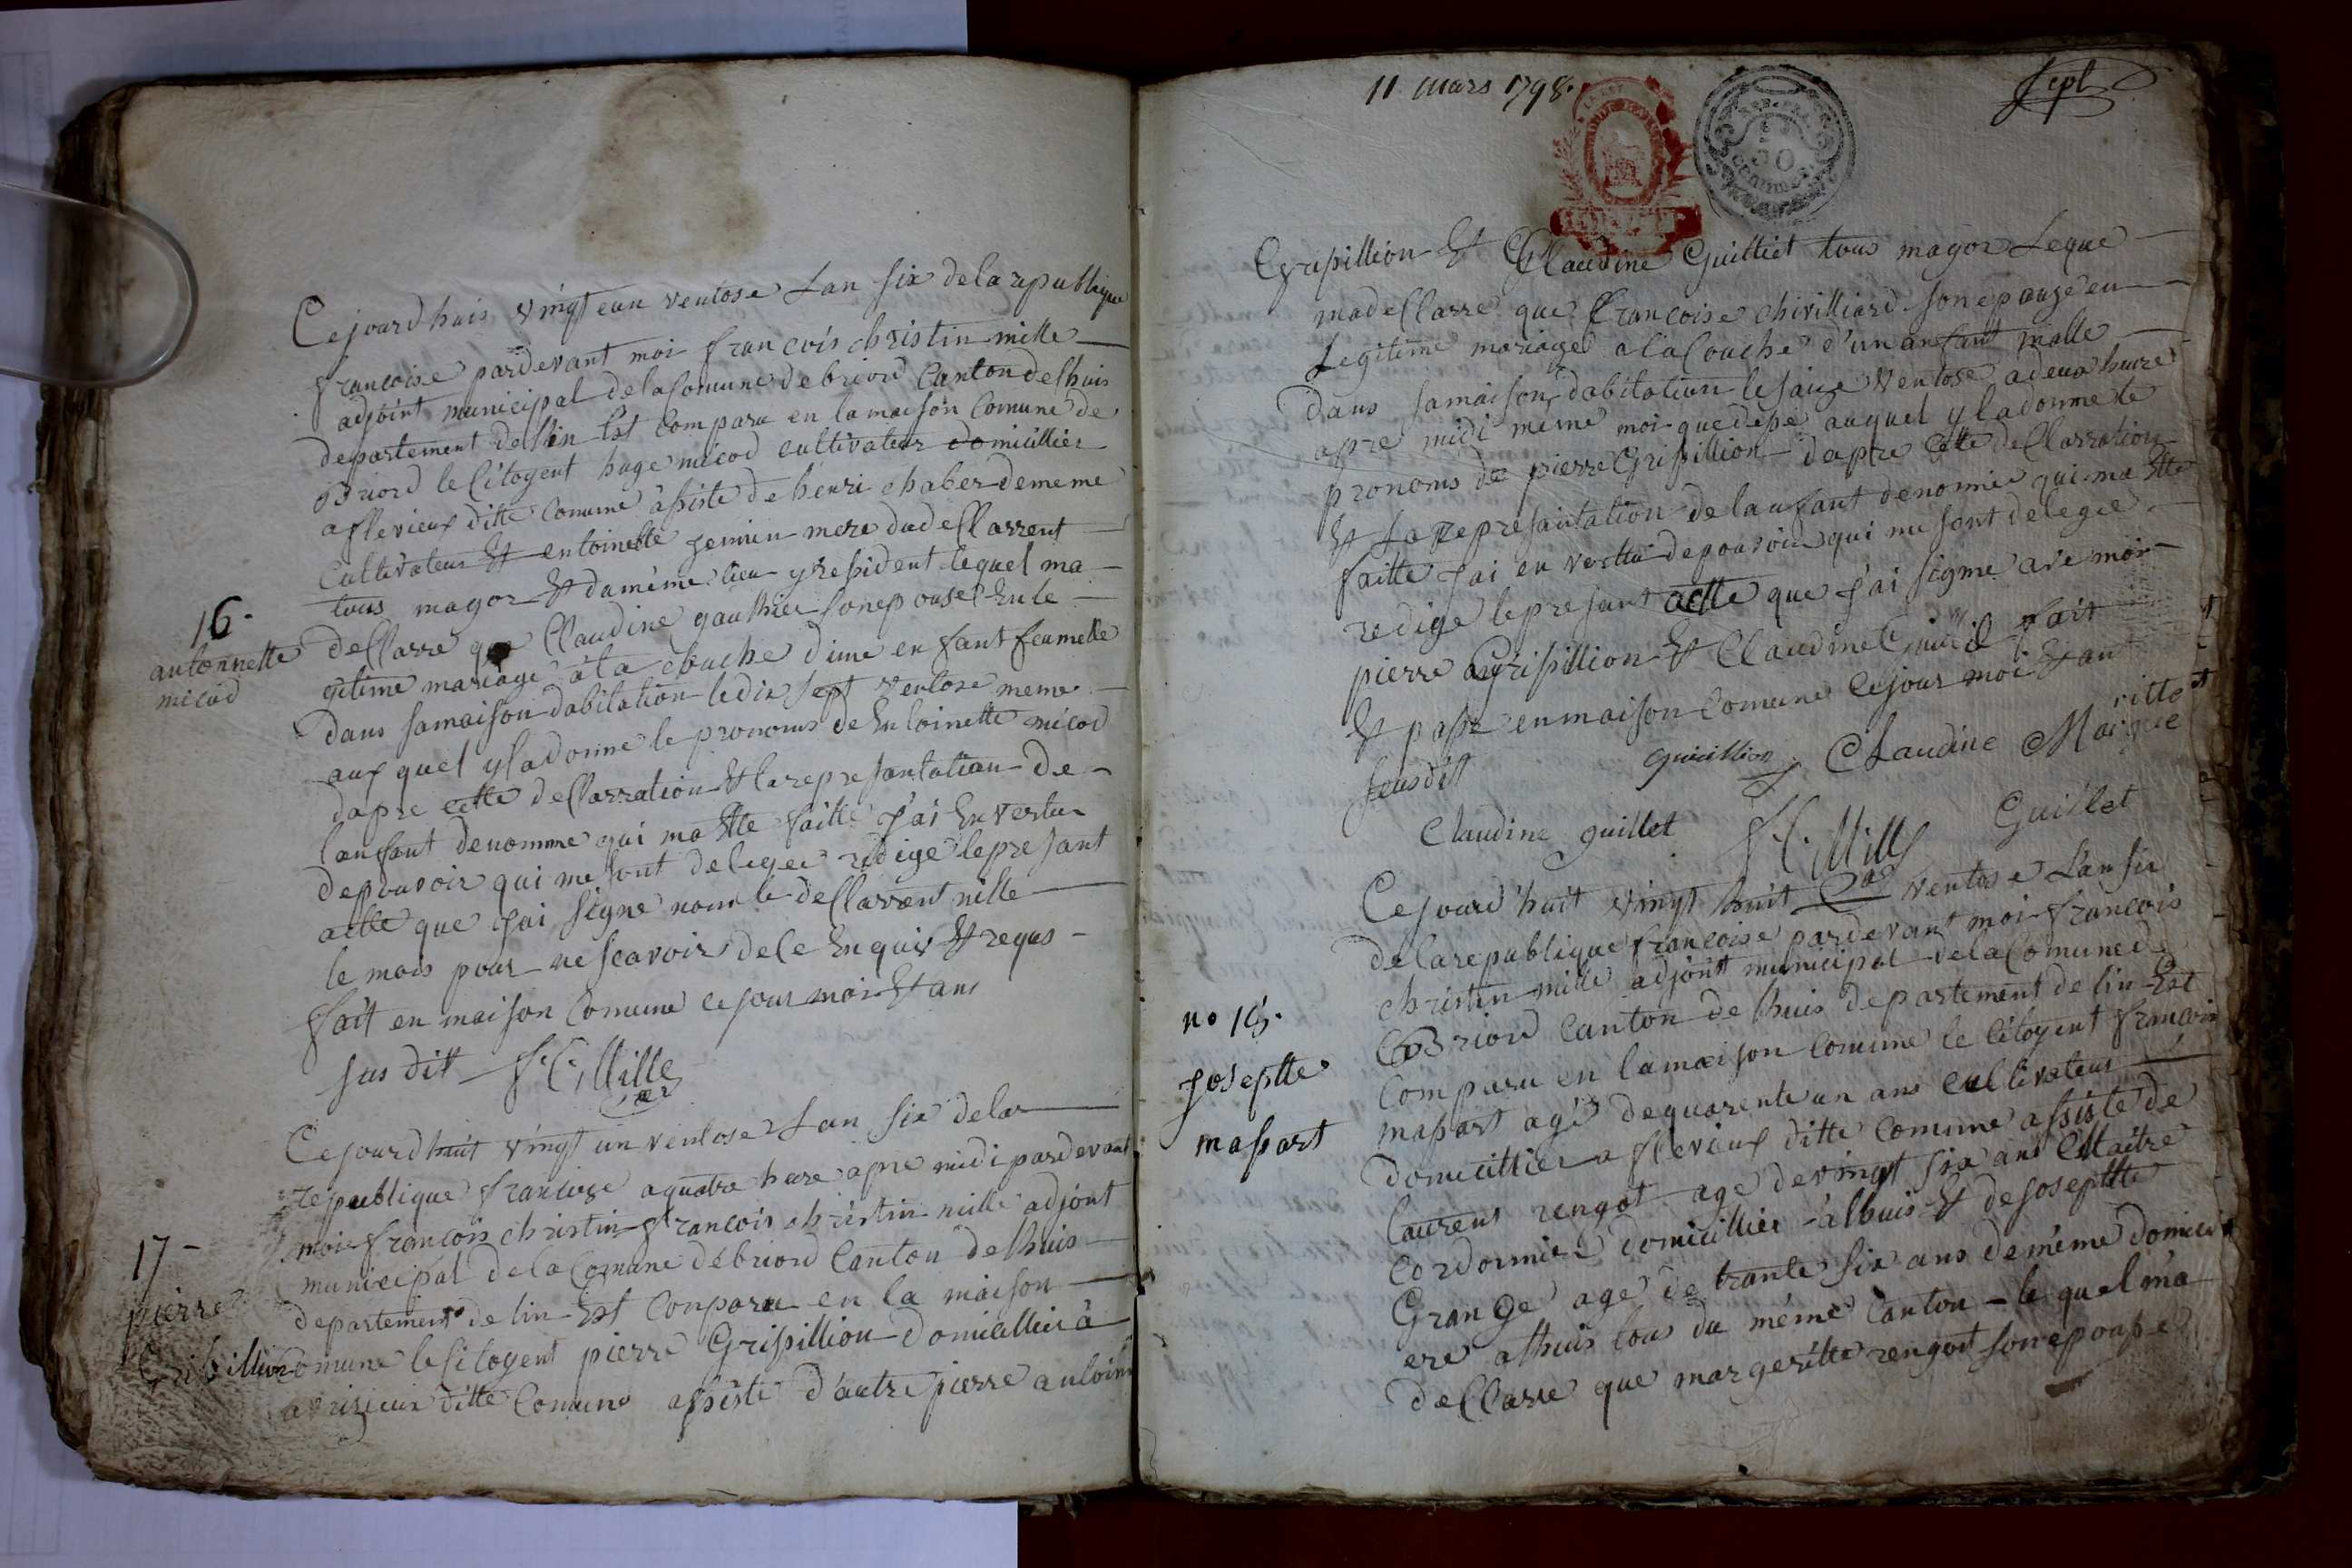 Cejourdhuis vingt eun ventose Lan six dela republique
francoise pardevant moi francois christin mille
adjoint municipal delaComune de briord Canton delhuis
departement dellin Est comparu en lamaison Comune de
Briord le Citoyent huge micod cultivateur domicillier
aflevieux ditte Comune assiste de henri chaber dememe
Cultivateur Et entoinette jennin mere dudeClarrent
tous magor Et damême lieu y resident lequel ma
16.
antonnette
micod
deClarre que Claudine gauthier sonepouse En le
gitime mariage à la couche d'une enfant feumelle
dans samaison dabitation ledix sept ventose meme
auxquel yladonne le pronoms de Entoinette micod
dapre cette deClarration Et larepresantation de
lanfant denomme qui ma Ette faitte j'ai En vertu
depouvoir qui me sont delegee redige lepresant
actte que jai signe nom le deClarrent nille
le mois pour ne scavoir dele Enquis Et requs
fait en maison Comune cejour moi Et ans
sus dit F.C. Mille
Cejourdhuit vingt un ventose Lan six dela
republique francoise aquatre heure apre midi pardevant
moi francois christin francois christin mille adjont
municipal delaComune debriord Canton delhuis
17
pierre
Gribillion
departement de lin Est Conparu en la maison
Comune leCitoyent pierre Grisillion domicillier à
avrisieux ditte Comune assiste d'autre pierre antoine
11 mars 1798.
Sept
50
Centimes
Grisillion Et Claudine Guilliet tous magor Leque
madeClarre que francoise chivilliard sonepouze en
Legitime mariage a la Couche d'un anfant malle
dans samaison dabitation lesaize ventose adeux heure
apre midi même moi quedepe auquel yladonne le
pronoms de pierre Grisillion dapre Cette deClarration
Et La Represantation delanfant denomme qui ma Ette
faitte jai en verttu depouvoir qui me sont delegee
redige lepresant actte que j'ai signe ave moi
pierre Grisillion Et Claudine Guilliet fait
Et passe enmaison Comune Cejour moi Et an
susdit
Claudine Margueritte
Claudine guillet
F.C. Mille
Guillet
Cejourd'huit vingt huit ventose Lan six
delarepublique francoise pardevant moi francois
christin mille adjoint municipal delaComune de
Briord Canton de lhuis departement de lin Est
no 18.
joseptte
masart
Comparu en lamaison Comune le Citoyent francois
masart agé dequarente un ans Cultivateur
domicillier a flevieux ditte Comune assiste de
laurent rengot age devingt six ans Maitre
Cordonnier domicillier alhuis Et de joseptte
Grange age de trante six ans de même domicil
ere alhuis tous du même Canton lequel ma
deClarre que margeritte rengot sonepouse